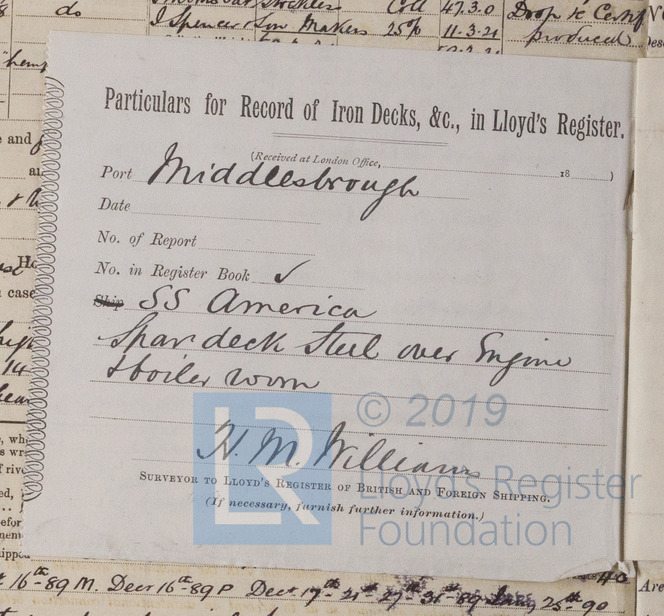 do
Coll 47.3.0 Drop & Certif
I Spencer & Son Makers 25% 11-3-21 produced
"hemp
Particulars for Record of Iron Decks, &c., in Lloyd's Register.
(Received at London Office, 18 )
Port Middlesbrough
Date
No. of Report
No. in Register Book ✓
Ship SS America
Spar deck Steel over Engine
& boiler room
H. M. Williams
SURVEYOR TO LLOYD'S REGISTER OF BRITISH AND FOREIGN SHIPPING.
(If necessary, furnish further information.)
LR © 2019
Lloyd's Register
Foundation
16th-89 M. Decr 16th-89 P Decr 17th- 21st- 27th- 31st-89 25th 90